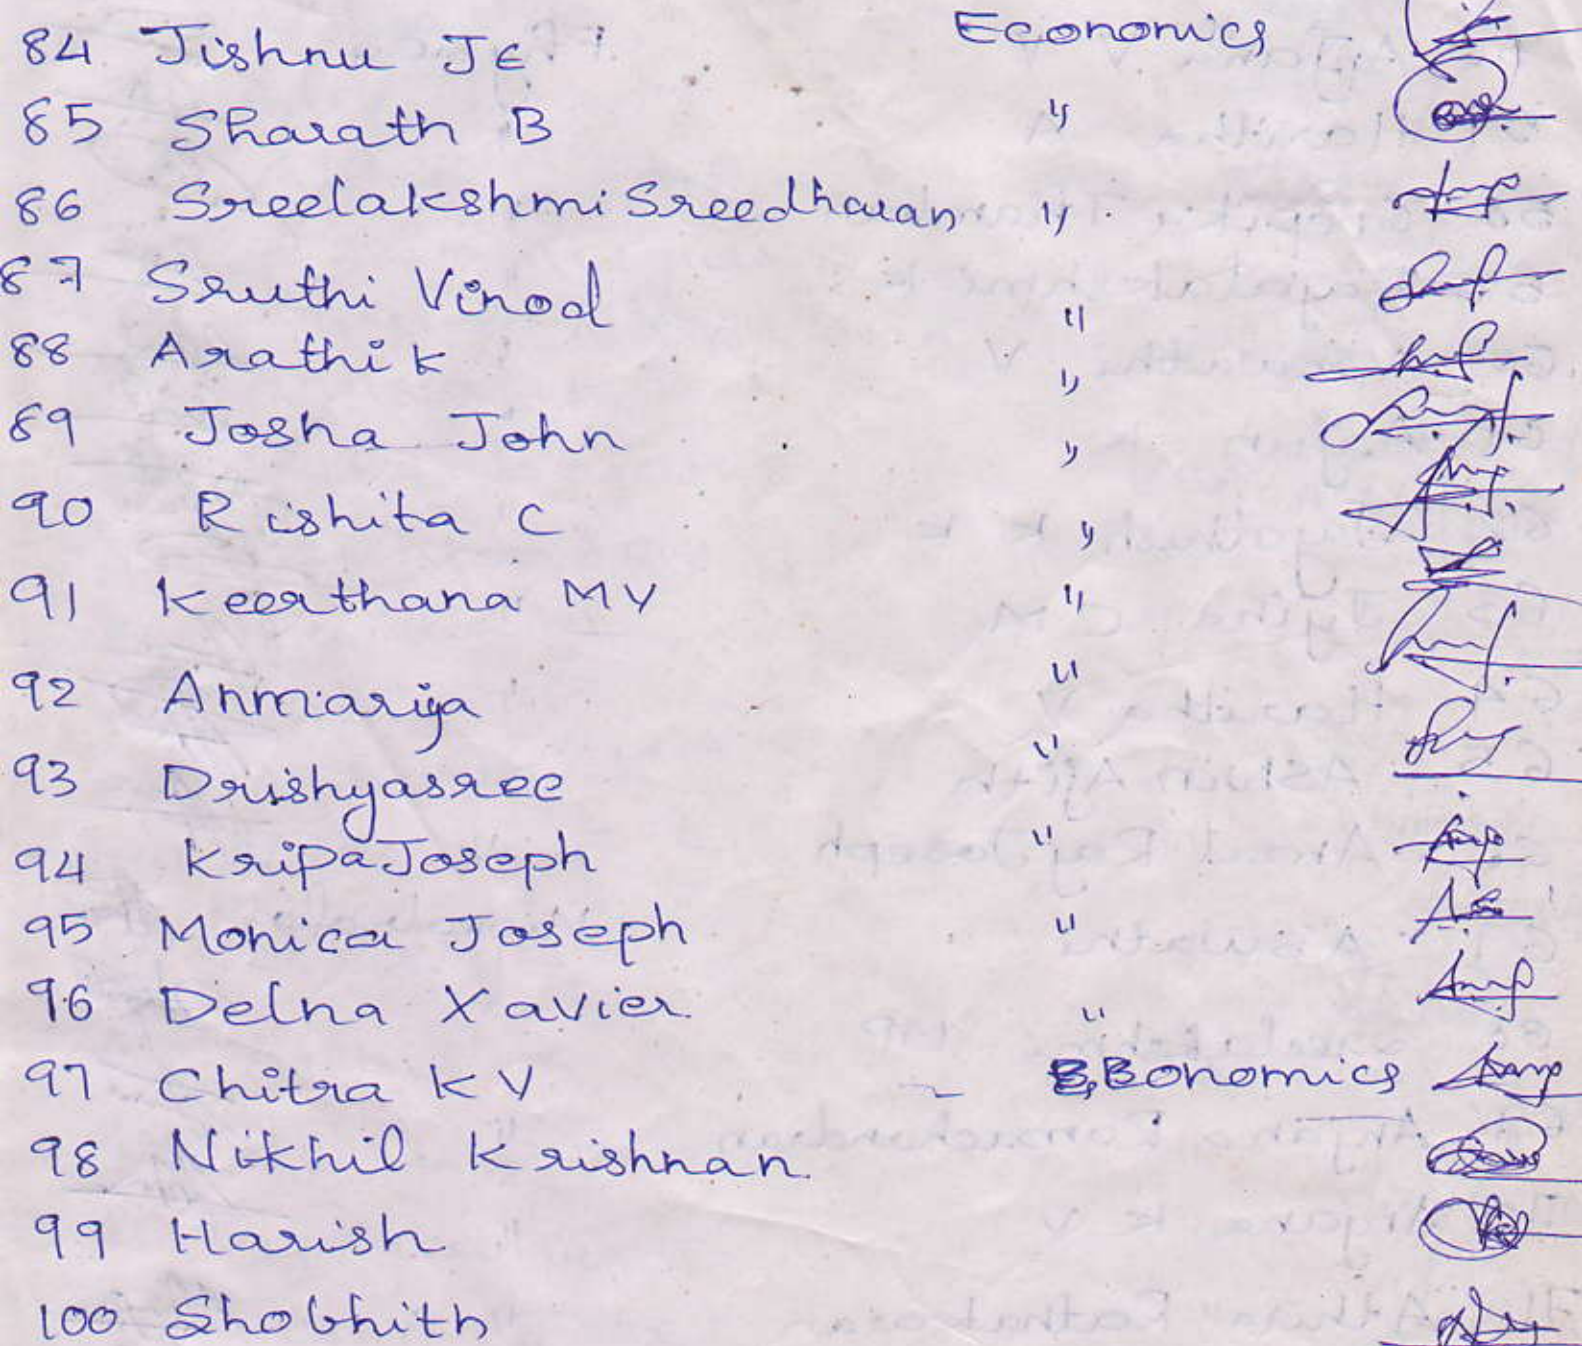 84 Jishnu J E Economics
85 Sharath B "
86 Sreelakshmi Sreedharan "
87 Sruthi Vinod "
88 Arathi k "
89 Josha John "
90 Rishita C "
91 Keerthana M V "
92 Anmariya "
93 Drishyasree "
94 Kripa Joseph "
95 Monica Joseph "
96 Delna Xavier "
97 Chitra K V Bonomics
98 Nikhil Krishnan
99 Harish
100 Shobhith